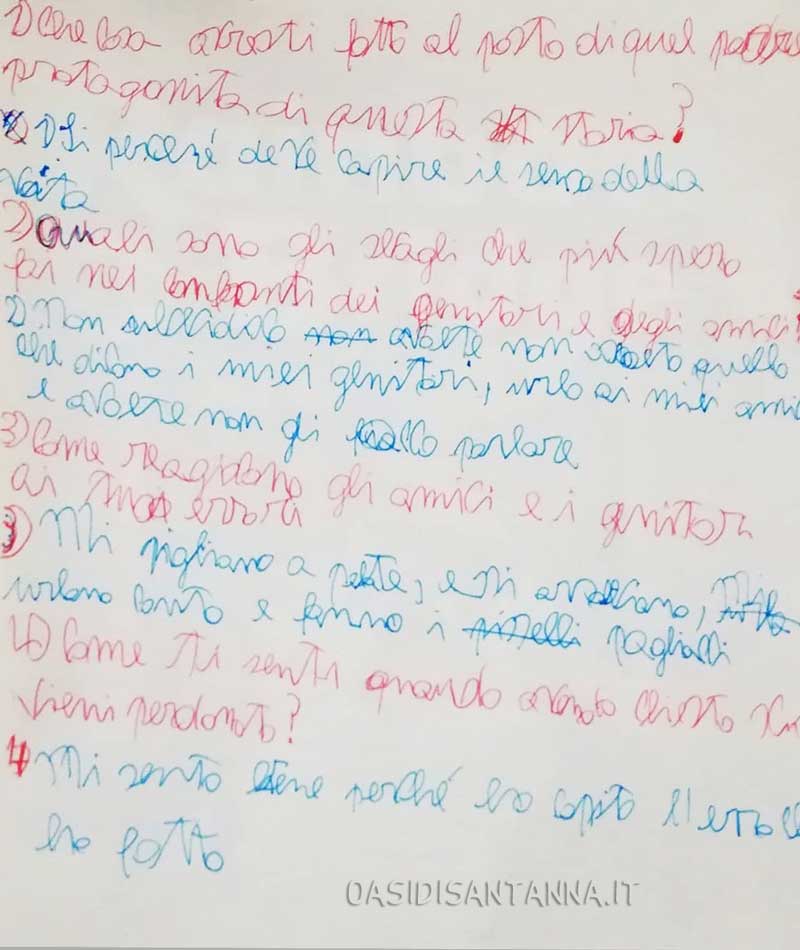 1) Che cosa avresti fatto al posto di quel padre
protagonista di questa storia?
1) Si perché deve capire il senso della
vita
2) Quali sono gli sbagli che più spesso
fai nei confronti dei genitori e degli amici?
2) Non ubbidisco avolte non ascolto quello
che dicono i miei genitori, urlo ai miei amici
e avolte non gli faccio parlare
3) Come reagiscono gli amici e i genitori
ai tuoi errori
3) Mi pigliano a, e si arrabbiano,
urlano tanto e fanno i pagliacci
4) Come ti senti quando avendo chiesto
vieni perdonato?
4 Mi sento bene perché ho capito l'errore
ho fatto
OASIDISANTANNA.IT